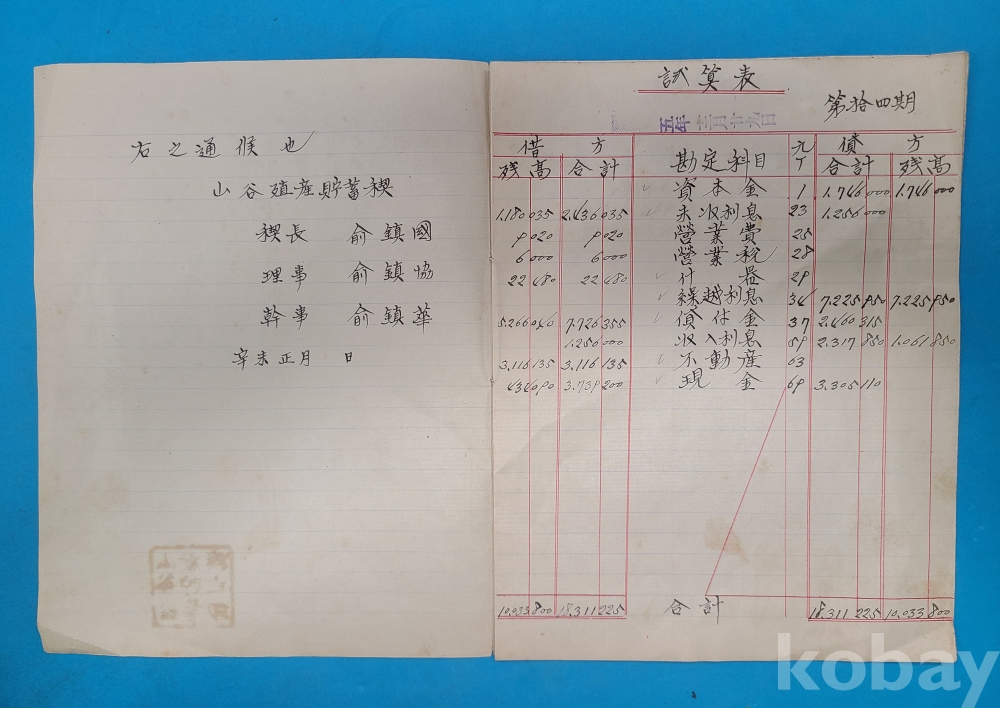 右之通候也
山谷殖産貯蓄稧
稧長 俞鎭國
理事 俞鎭協
幹事 俞鎭華
辛未正月 日
試算表
第拾四期
五年 月廿九日
借方 勘定科目 丁 債方
残高 合計 合計 残高
資本金 1 1.746 000 1.746 000
1.180 035 2.436 035 未収利息 23 1.256 000
9 020 9 020 營業費 25
6 000 6 000 營業税 28
22 480 22 480 什器 29
繰越利息 34 7.225 950 7.225 950
5.266 040 7.726 355 貸付金 37 2.460 315
1.256 000 収入利息 59 2.317 850 1.061 850
3.116 135 3.116 135 不動産 63
434 090 3.739 200 現金 69 3.305 110
10.033 800 18.311 225 合計 18.311 225 10.033 800
kobay